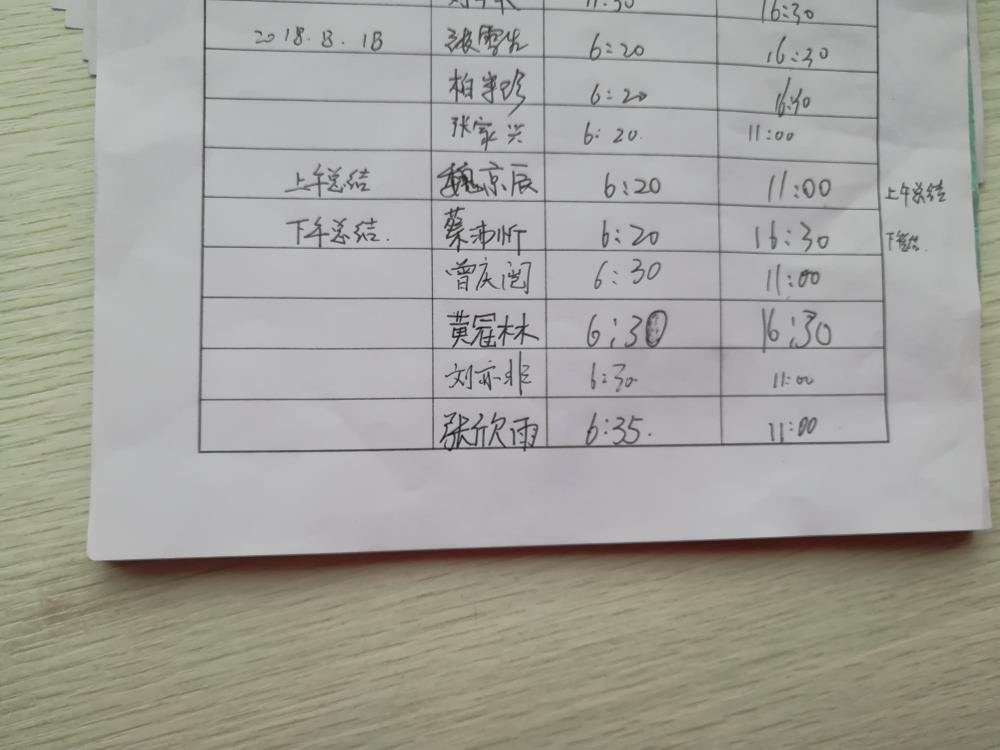 11:30 16:30
2018.8.18 张雪生 6:20 16:30
柏 珍 6:20 16:40
张家兴 6:20. 11:00
上午总结 魏京辰 6:20 11:00 上午总结
下午总结. 蔡沛忻 6:20 16:30 下午总结.
曾庆闯 6:30 11:00
黄冠林 6:30 16:30
刘亦非 6:30. 11:00
张欣雨 6:35. 11:00